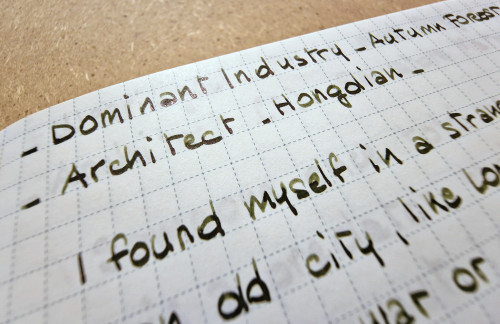 - Dominant Industry - Autumn Forest
- Architect - Hongdian -
I found myself in a
old city, like
or